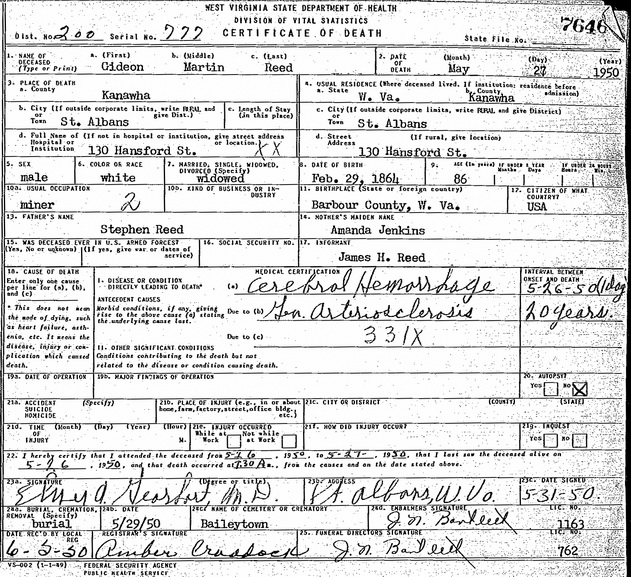 WEST VIRGINIA STATE DEPARTMENT OF HEALTH
DIVISION OF VITAL STATISTICS
CERTIFICATE OF DEATH
Dist. No. 200 Serial No. 777 State File No. 7646
1. NAME OF DECEASED (Type or Print) a. (First) Gideon b. (Middle) Martin c. (Last) Reed
2. DATE OF DEATH (Month) May (Day) 27 (Year) 1950
3. PLACE OF DEATH a. County Kanawha
4. USUAL RESIDENCE (Where deceased lived. If institution: residence before admission) a. State W. Va. b. County Kanawha
b. City (If outside corporate limits, write RURAL and give Dist.) or Town St. Albans c. Length of Stay (in this place)
c. City (If outside corporate limits, write RURAL, and give District) or Town St. Albans
d. Full Name of (If not in hospital or institution, give street address or location.) Hospital or Institution 130 Hansford St. XX
d. Street Address (If rural, give location) 130 Hansford St.
5. SEX male 6. COLOR OR RACE white 7. MARRIED, SINGLE, WIDOWED, DIVORCED (Specify) widowed
8. DATE OF BIRTH Feb. 29, 1864 9. AGE (In years) 86 IF UNDER 1 YEAR Months Days IF UNDER 24 HOURS Hours Min.
10a. USUAL OCCUPATION miner 2 10b. KIND OF BUSINESS OR INDUSTRY
11. BIRTHPLACE (State or foreign country) Barbour County, W. Va. 12. CITIZEN OF WHAT COUNTRY? USA
13. FATHER'S NAME Stephen Reed
14. MOTHER'S MAIDEN NAME Amanda Jenkins
15. WAS DECEASED EVER IN U.S. ARMED FORCES? (Yes, No or unknown) (If yes, give war or dates of service) 16. SOCIAL SECURITY NO.
17. INFORMANT James H. Reed
18. CAUSE OF DEATH Enter only one cause per line for (a), (b), and (c)
* This does not mean the mode of dying, such as heart failure, asthenia, etc. It means the disease, injury or complication which caused death.
MEDICAL CERTIFICATION
I. DISEASE OR CONDITION DIRECTLY LEADING TO DEATH* (a) Cerebral Hemorrhage
INTERVAL BETWEEN ONSET AND DEATH 5-26-50 (1 day)
ANTECEDENT CAUSES Morbid conditions, if any, giving rise to the above cause (a) stating the underlying cause last.
Due to (b) Gen. Arteriosclerosis 20 years.
Due to (c) 331X
II. OTHER SIGNIFICANT CONDITIONS Conditions contributing to the death but not related to the disease or condition causing death.
19a. DATE OF OPERATION 19b. MAJOR FINDINGS OF OPERATION 20. AUTOPSY Yes No X
21a. ACCIDENT SUICIDE HOMICIDE (Specify) 21b. PLACE OF INJURY (e.g., in or about home, farm, factory, street, office bldg., etc.) 21c. CITY OR DISTRICT (COUNTY) (STATE)
21d. TIME OF INJURY (Month) (Day) (Year) (Hour) M. 21e. INJURY OCCURRED While at Work Not while at Work 21f. HOW DID INJURY OCCUR? 21g. INQUEST Yes No
22. I hereby certify that I attended the deceased from 5-26, 1950, to 5-27-, 1950, that I last saw the deceased alive on
5-26, 1950, and that death occurred at 7:30 A m., from the causes and on the date stated above.
23a. SIGNATURE (Degree or title) M.D. 23b. ADDRESS St. Albans, W. Va. 23c. DATE SIGNED 5-31-50.
24a. BURIAL, CREMATION, REMOVAL (Specify) burial 24b. DATE 5/29/50 24c. NAME OF CEMETERY OR CREMATORY Baileytown 24d. EMBALMERS SIGNATURE LIC. NO. 1163
DATE REC'D BY LOCAL REG REGISTRAR'S SIGNATURE Amber Craddock 25. FUNERAL DIRECTORS SIGNATURE LIC. NO. 762
VS-002 (1-1-49) FEDERAL SECURITY AGENCY
PUBLIC HEALTH SERVICE